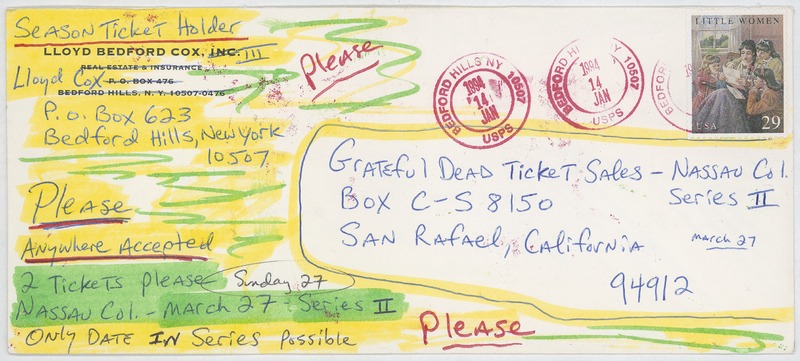 Season Ticket Holder
LLOYD BEDFORD COX, INC. III
REAL ESTATE & INSURANCE
Lloyd Cox P. O. BOX 476
BEDFORD HILLS, N. Y. 10507-0476
P.O. Box 623
Bedford Hills, New York
10507
Please
Anywhere Accepted
2 Tickets Please Sunday 27
Nassau Col. - March 27 - Series II
Only Date IN Series Possible
Please
BEDFORD HILLS NY 10507
1994
14
JAN
USPS
BEDFORD HI NY 10507
1994
14
JAN
USPS
BEDFORD
LITTLE WOMEN
USA 29
Grateful Dead Ticket Sales - Nassau Col.
Box C-S 8150 Series II
San Rafael, California March 27
94912
Please